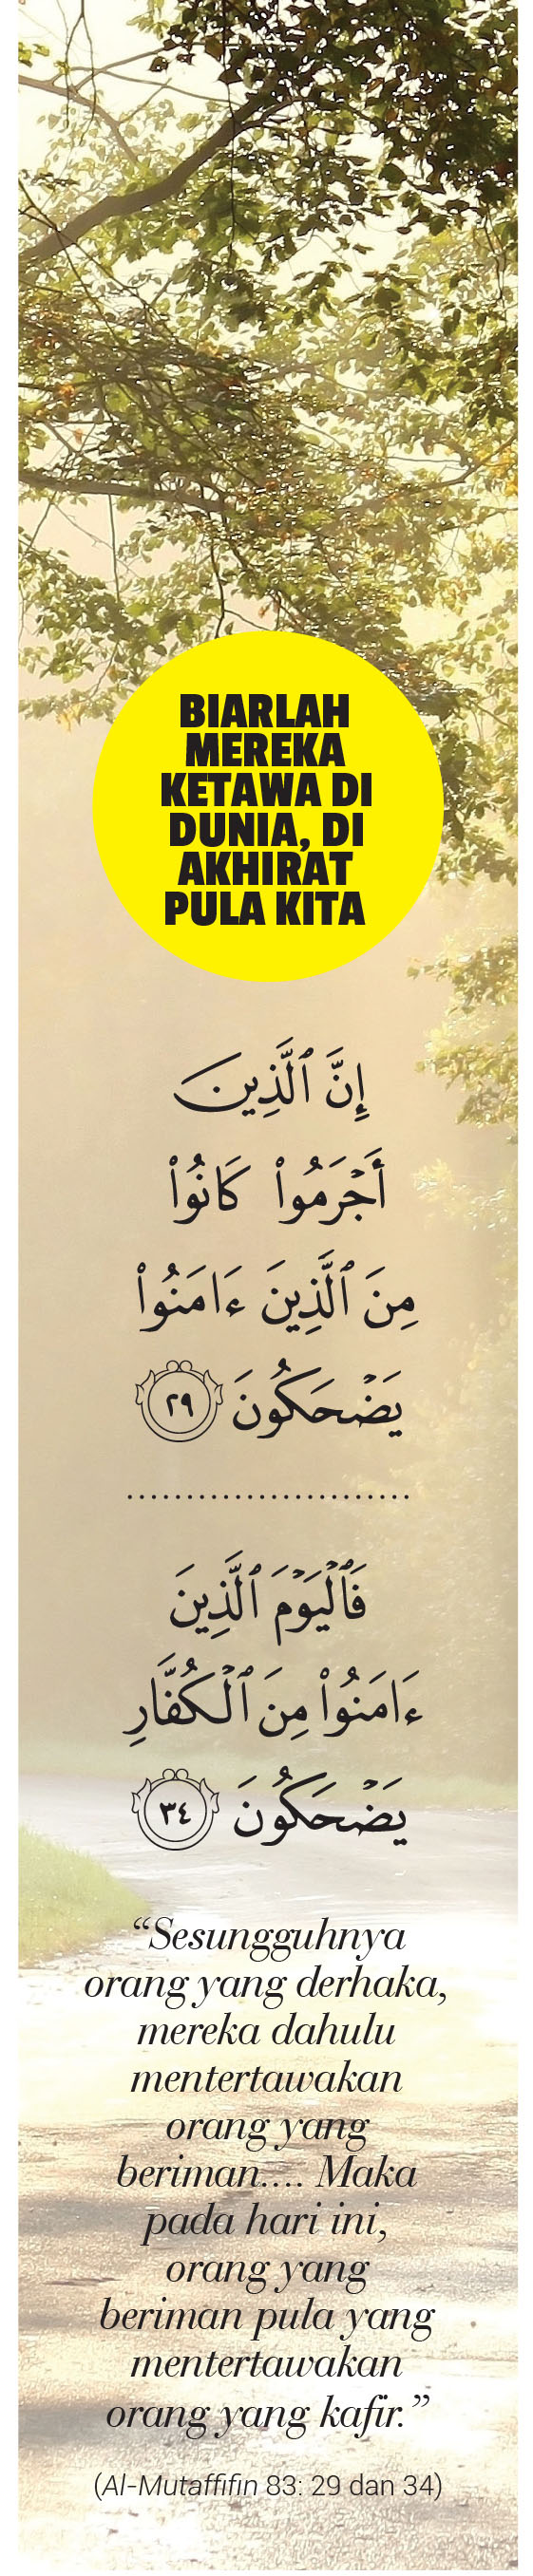 BIARLAH
MEREKA
KETAWA DI
DUNIA, DI
AKHIRAT
PULA KITA
إِنَّ ٱلَّذِينَ
أَجْرَمُوا۟ كَانُوا۟
مِنَ ٱلَّذِينَ ءَامَنُوا۟
يَضْحَكُونَ ٢٩
........................
فَٱلْيَوْمَ ٱلَّذِينَ
ءَامَنُوا۟ مِنَ ٱلْكُفَّارِ
يَضْحَكُونَ ٣٤
“Sesungguhnya
orang yang derhaka,
mereka dahulu
mentertawakan
orang yang
beriman.... Maka
pada hari ini,
orang yang
beriman pula yang
mentertawakan
orang yang kafir.”
(Al-Mutaffifin 83: 29 dan 34)